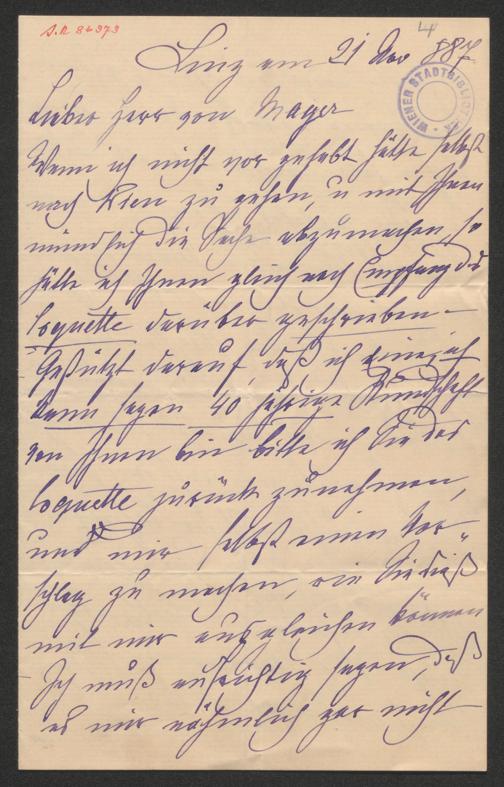 J.N. 84373
4
Linz am 21 Nov 887
WIENER STADTBIBLIOTHEK
Lieber Herr von Mayer
Wenn ich nicht vor gehabt hätte selbst
nach Wien zu gehen, u mit Ihnen
mündlich die Sache abzumachen, so
hätte ich Ihnen gleich nach Empfang des
Coquette darüber geschrieben –
Gestützt darauf, daß ich
kann sagen 40 jährige Kundschaft
von Ihnen bin bitte ich Sie das
Coquette zurück zunehmen,
und mir selbst einen Vor„
schlag zu machen, wie Sie dieß
mit mir ausgleichen können
Ich muß aufrichtig sagen, daß
es mir nähmlich gar nicht